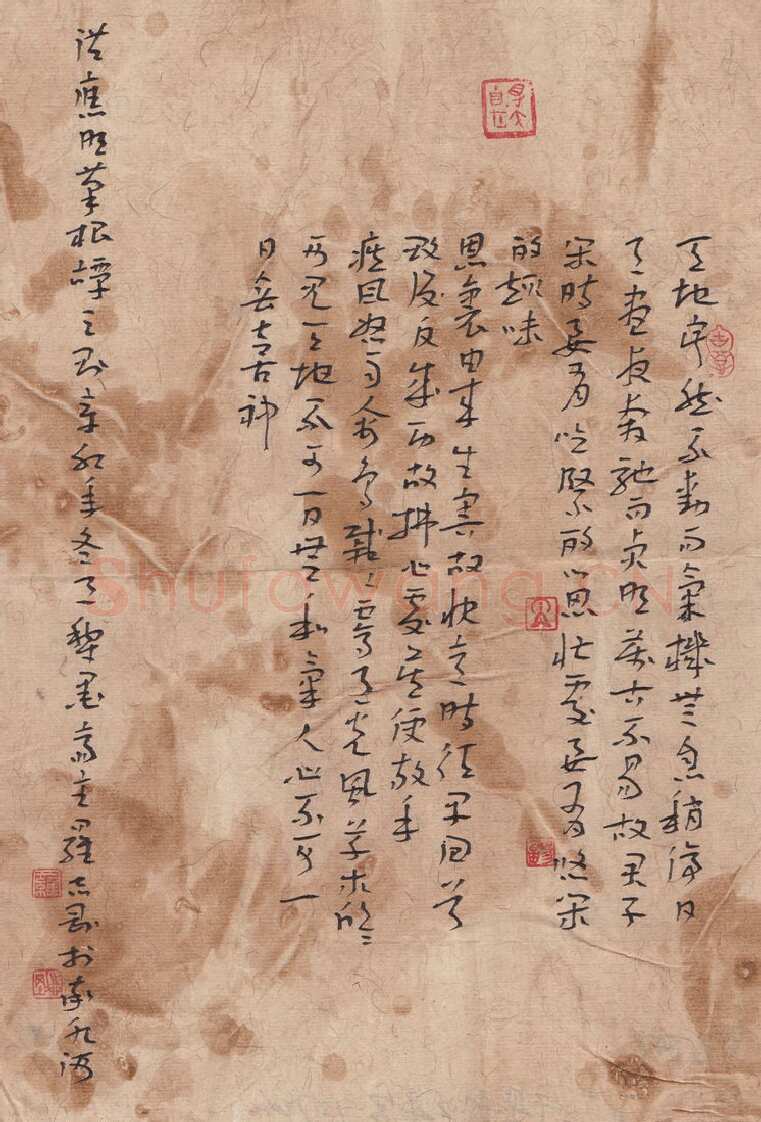 天地寂然不動而氣機無息稍停日
月晝夜奔馳而貞明萬古不易故君子
閑時要有吃緊的心思忙處要有悠閑
的趣味
恩裏由來生害故快意時須早回首
敗後反成功故拂心處莫便放手
疾風怒雨禽鳥戚戚霽月光風草木欣欣
可見天地不可一日無和氣人心不可一
日無喜神
洪應明菜根譚三則辛卯年冬月犁墨齋主羅志於
Shufawang.CN